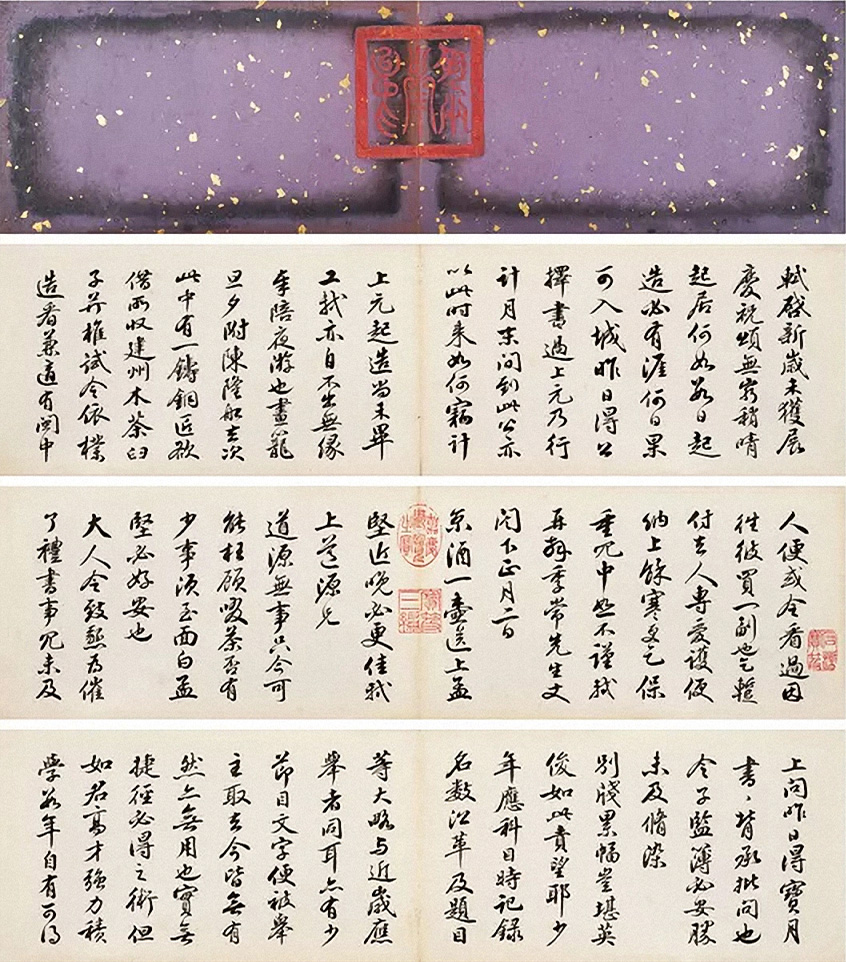 軾啓新歲未獲展
慶祝頌無窮稍晴
起居何如數日起
造必有涯何日果
可入城昨日得公
擇書過上元乃行
計月末間到此公亦
以此時来如何竊計
上元起造尚未畢
工軾亦自不出無緣
奉陪夜游也畫籠
旦夕附陳隆船去次
此中有一鑄銅匠欲
借所收建州木茶臼
子并椎試令依樣
造看兼適有閩中
人便或令看過因
往彼買一副也乞蹔
付去人專愛護便
納上餘寒更乞保
重冗中恕不謹軾
再拜季常先生丈
閤下正月二日
京酒一壺送上孟
堅近晚必更佳軾
上道源兄
道源無事只今可
能枉顧啜茶否有
少事須至面白孟
堅必好安也
大人令致懇為催
了禮書事冗未及
上問昨日得寶月
書、背承批問也
令子監簿必安勝
未及脩染
別牋累幅豈堪英
俊如此責望耶少
年應科目時記錄
名數沿革及題目
等大略与近歲應
舉者同耳亦有少
節目文字便被舉
主取去今皆無有
然亦無用也實無
捷徑必得之術但
如君高才強力積
學數年自有可得